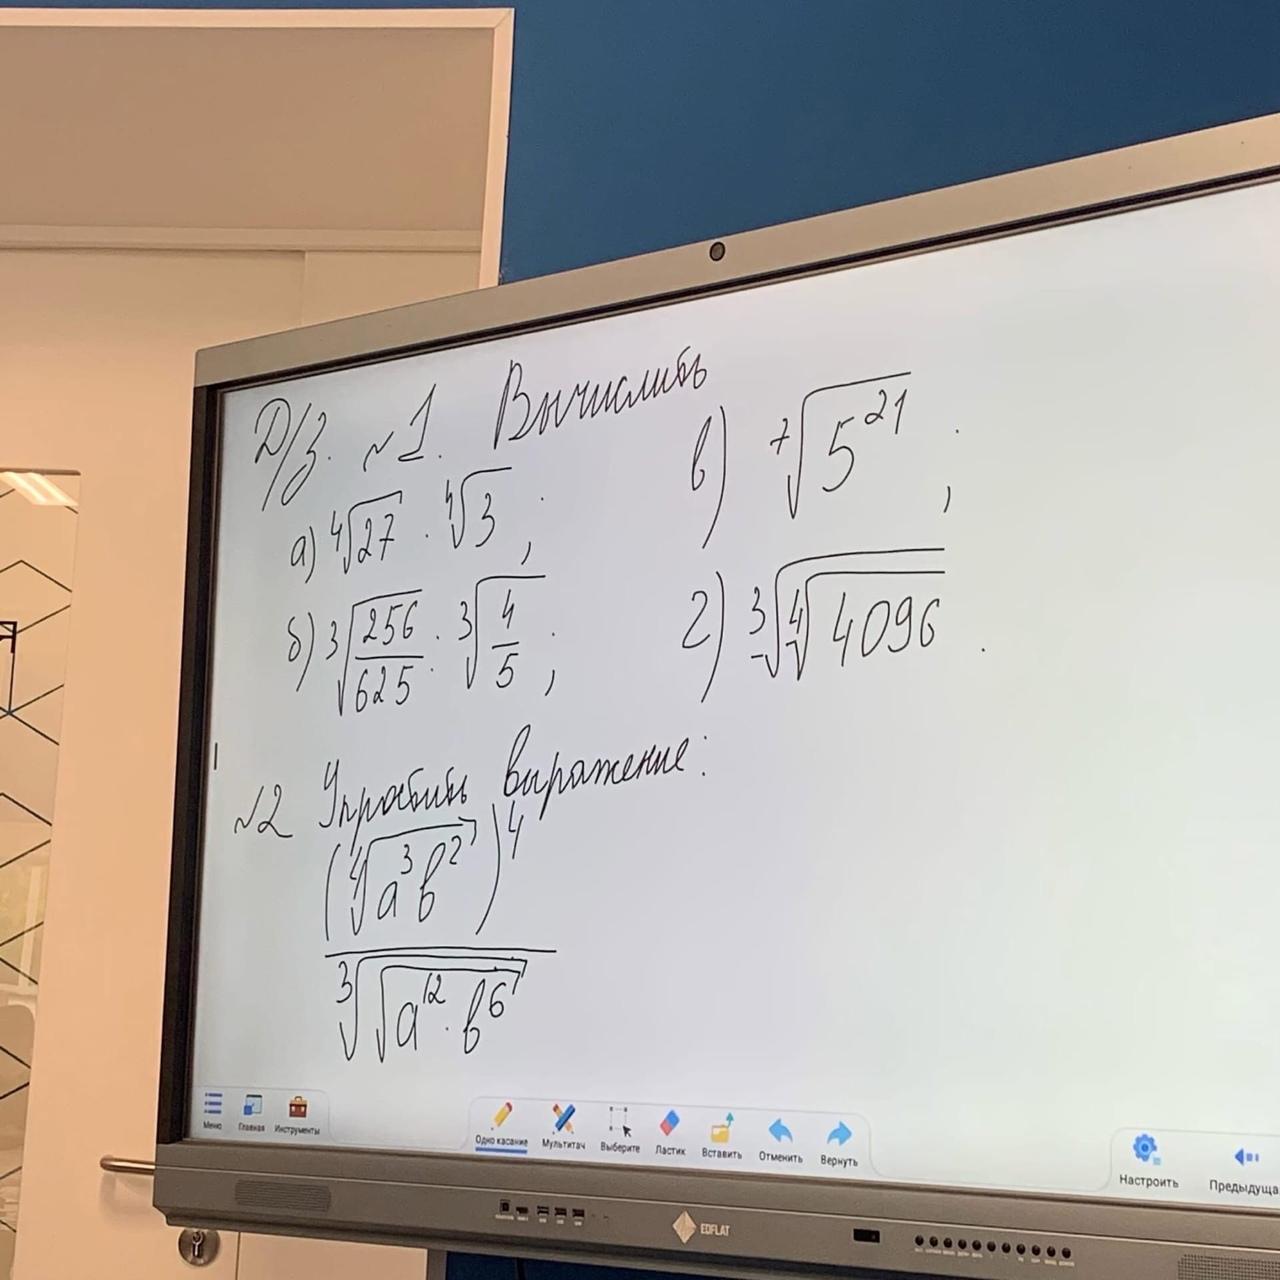 Д/З. №1. Вычислить
а) ⁴√27 · ⁴√3 ;
б) ³√(256/625) · ³√(4/5) ;
в) ⁷√(5²¹) ;
г) ³√(⁴√4096) .
№2 Упростить выражение:
(⁴√(a³b²))⁴
³√(√(a¹² · b⁶))
Меню Главная Инструменты
Одно касание Мультитач Выберите Ластик Вставить Отменить Вернуть
Настроить Предыдуща
EDFLAT